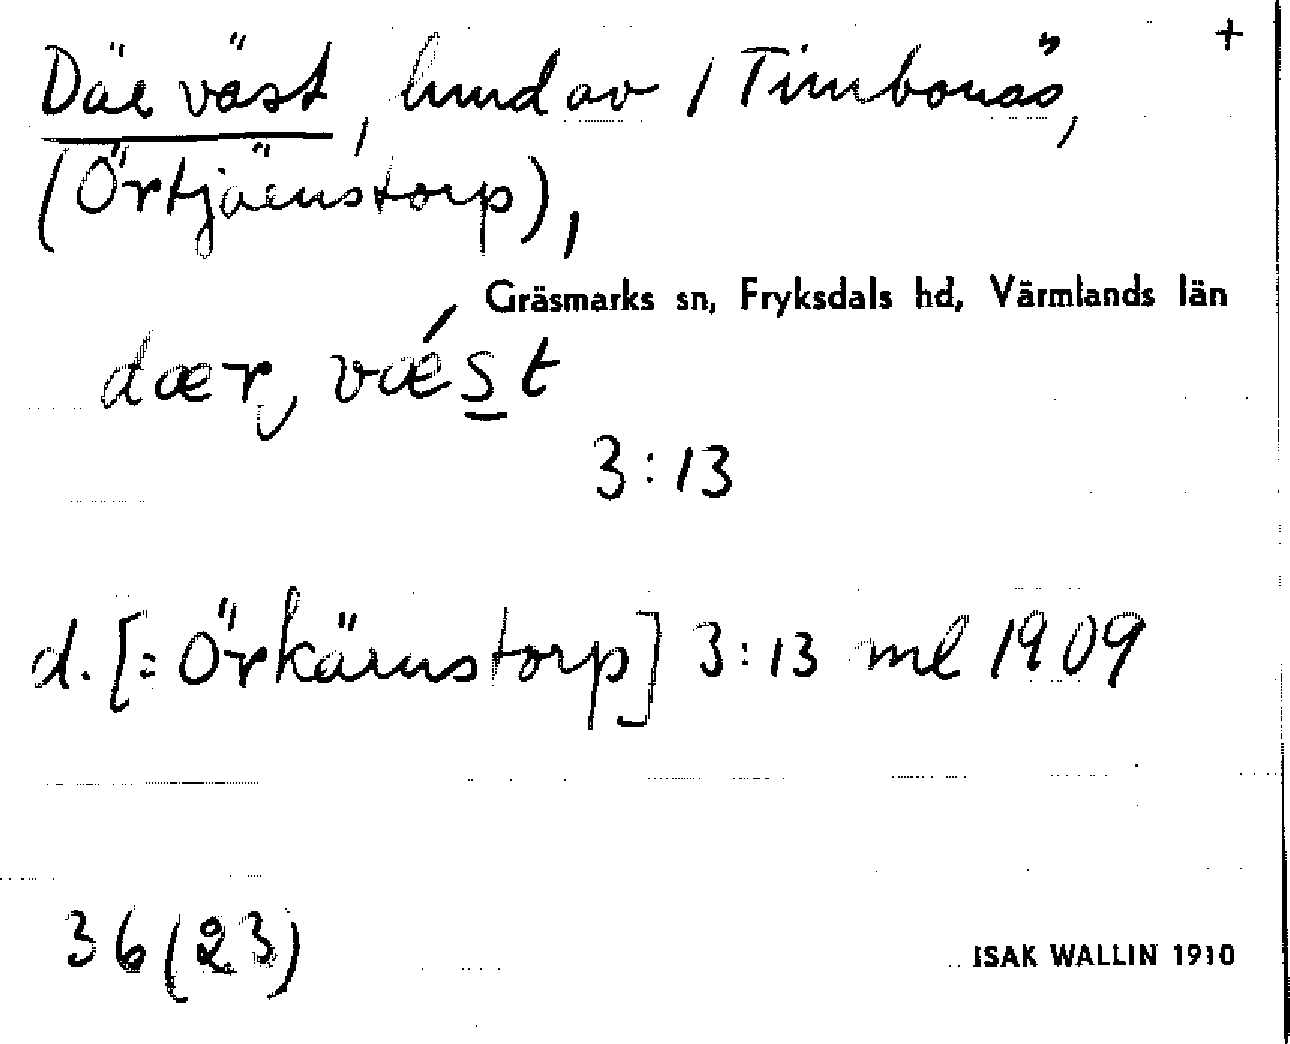 +
Där väst, hmd av / Timbonäs,
(Örtjäenstorp),
Gräsmarks sn, Fryksdals hd, Värmlands län
dær, vǽst
3:13
d. [= Örkärnstorp] 3:13 ml 1909
36(23)
ISAK WALLIN 1910